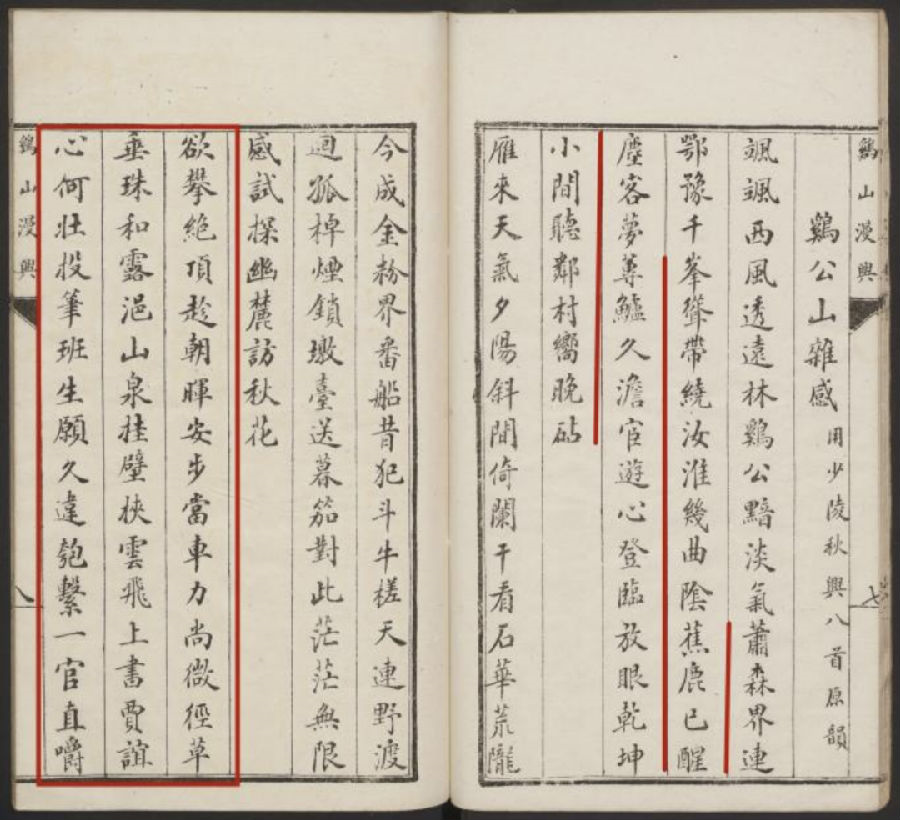 鷄山漫興
七
鷄公山雜感 用少陵秋興八首原韻
颯颯西風透遠林鷄公黯淡氣蕭森界連
鄂豫千峯聳帶繞汝淮幾曲陰蕉鹿已醒
塵客夢蓴鱸久澹宦遊心登臨放眼乾坤
小間聽鄰村嚮晚砧
雁來天氣夕陽斜間倚闌干看石華荒隴
今成金粉界番船昔犯斗牛槎天連野渡
迴孤棹煙鎖墩臺送暮笳對此茫茫無限
感試探幽麓訪秋花
欲攀絶頂趁朝暉安步當車力尚微徑草
垂珠和露浥山泉挂壁挾雲飛上書賈誼
心何壯投筆班生願久違匏繫一官直嚼
鷄山漫興
八